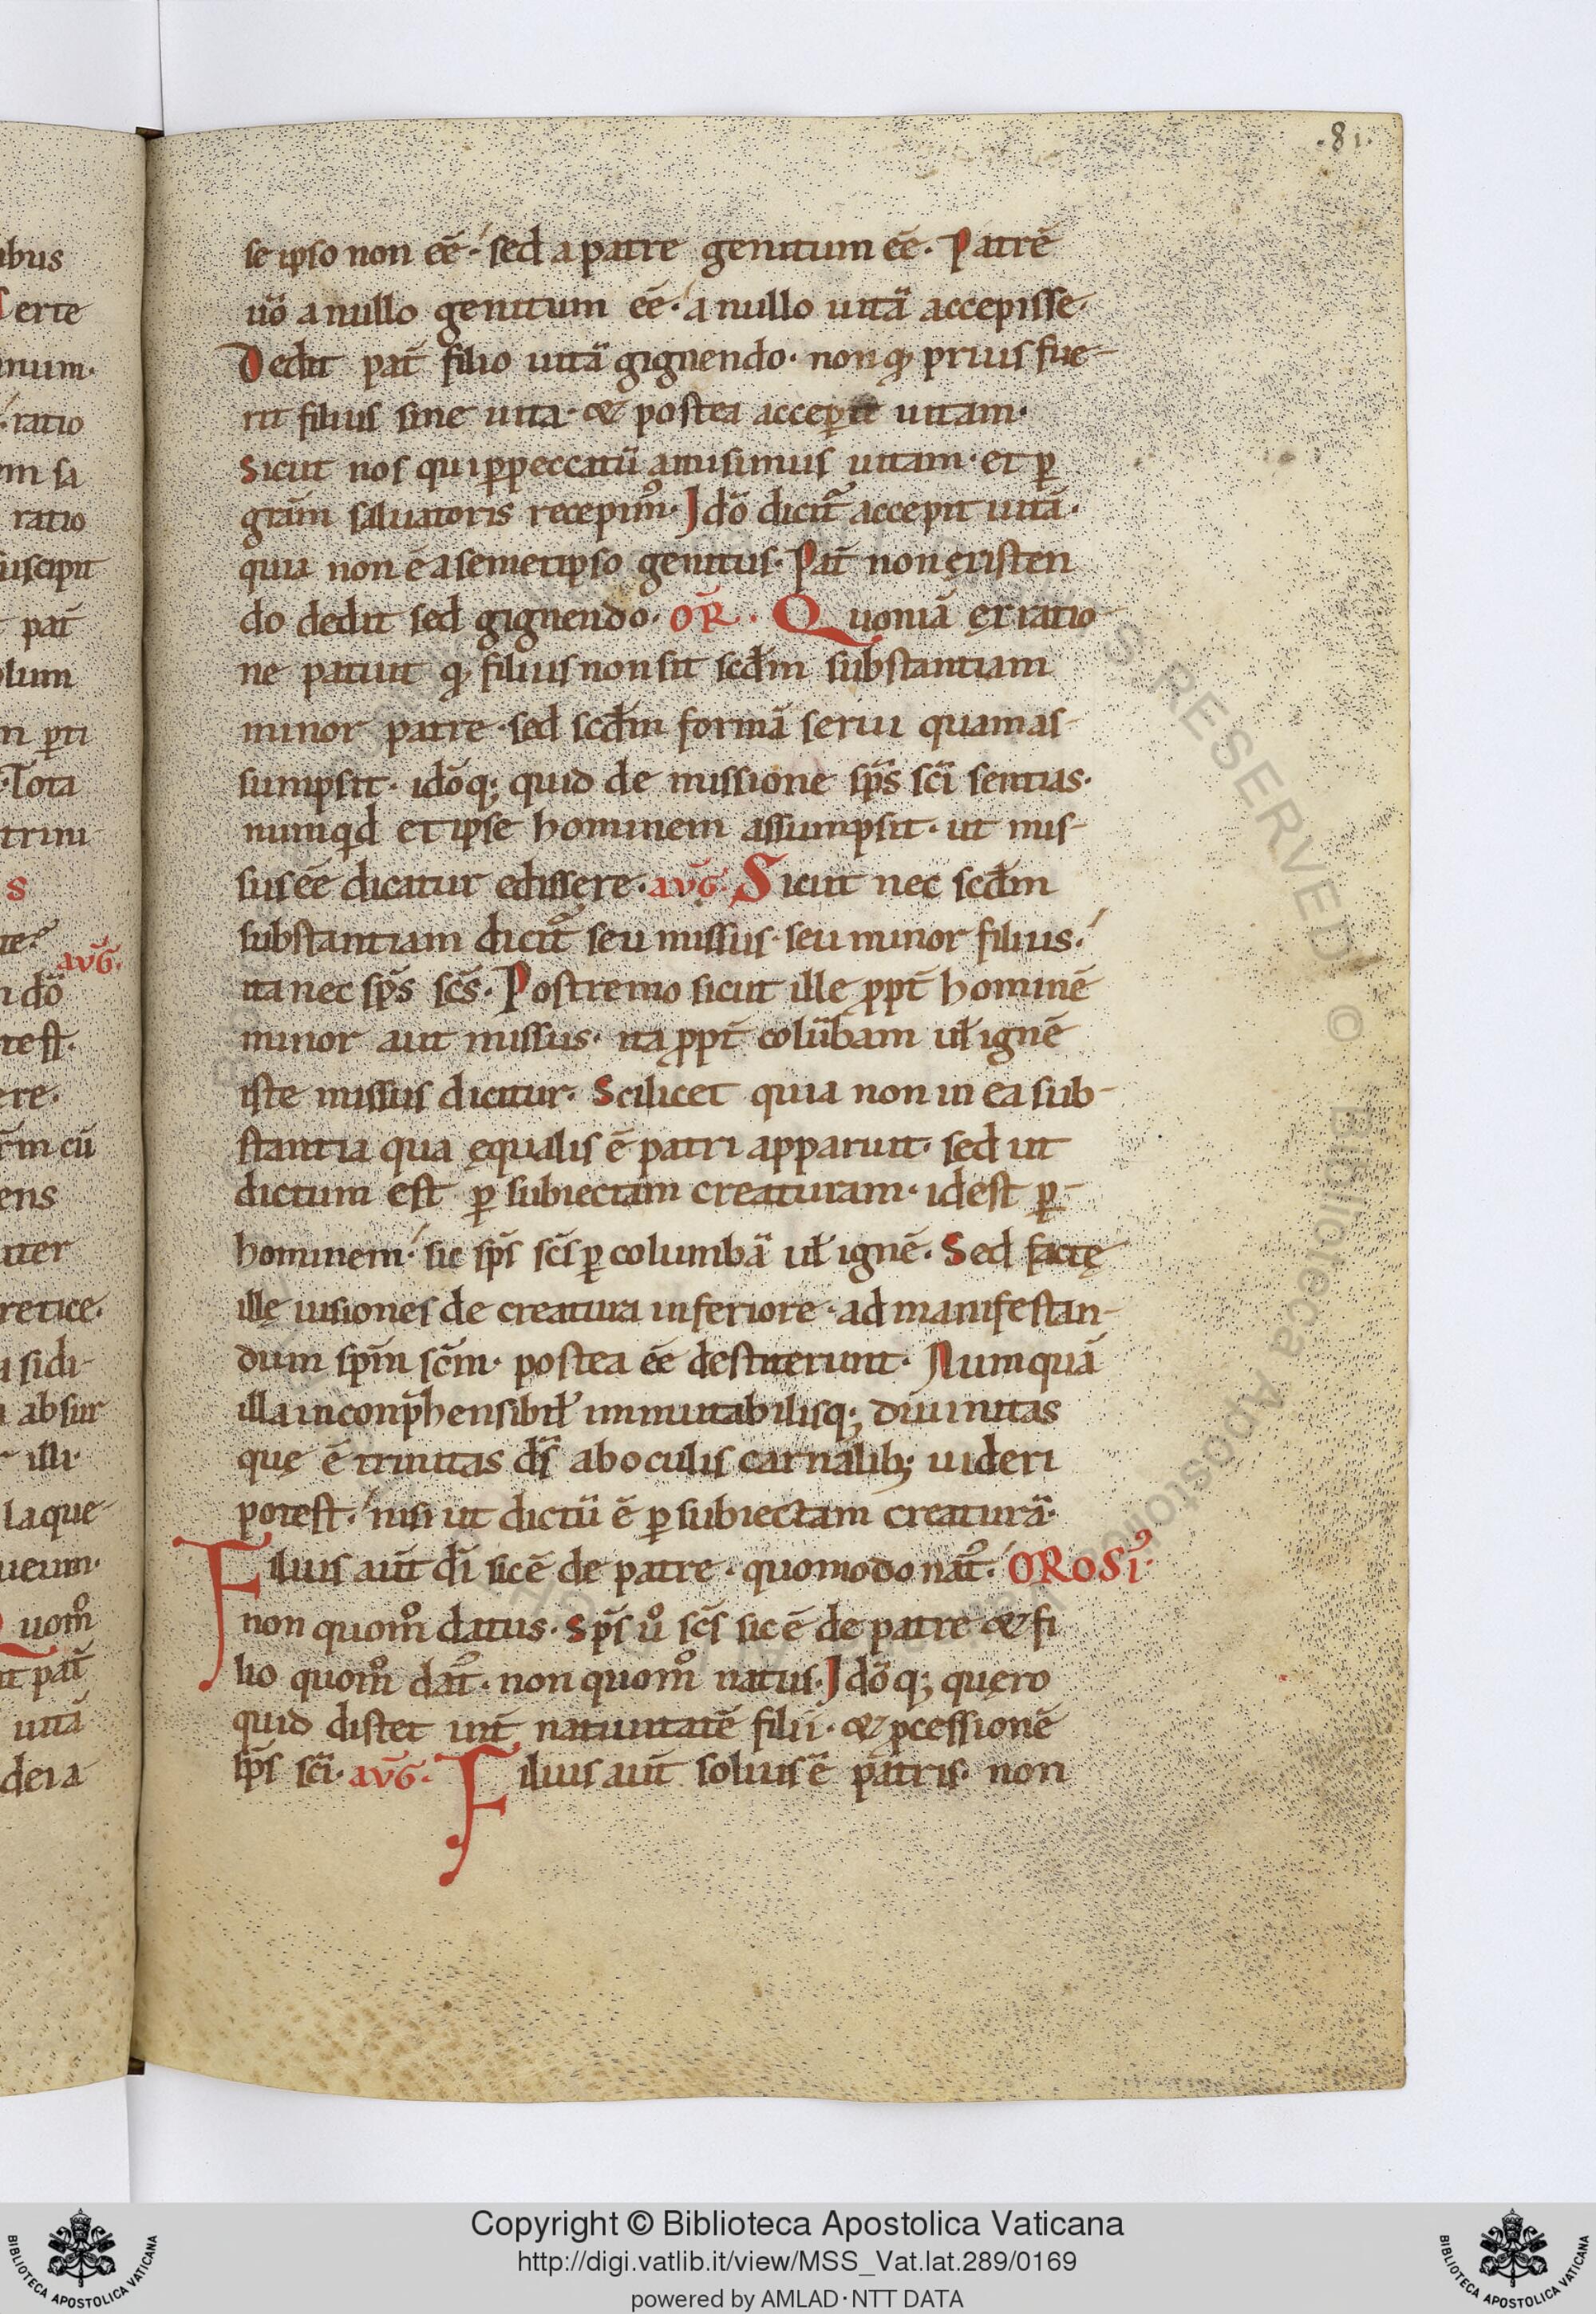 .81.
se ipso non eē· sed a patre genitum eē. Patrē
uō a nullo genitum eē· a nullo uitā accepisse·
Dedit pat̄ filio uitā gignendo· non qđ prius fue-
rit filius sine uita· & postea acceperit uitam·
Sicut nos qui p̱ peccatū amisimus uitam· et p̱
grām saluatoris recepim᷒· Idō dicit᷑ accepit uitā·
quia non ē a semetipso genitus· Pat̄ non existen
do dedit sed gignendo· OR̄· Quoniā ex ratio
ne patuit qđ filius non sit scd̄m substantiam
minor patre· sed scd̄m formā serui quam as-
sumpsit· idōq; quid de missione sp̄s sc̄i sentias·
numqd et ipse hominem assumpsit· ut mis-
sus eē dicatur edissere· AVḠ· Sicut nec scd̄m
substantiam dicit᷑ seu missus· seu minor filius·
ita nec sp̄s sc̄s. Postremo sicut ille ꝓpt̄ hominē
minor aut missus· ita ꝓpt̄ colūbam ul̄ ignē
iste missus dicitur· Scilicet quia non in ea sub-
stantia qua ęqualis ē patri apparuit· sed ut
dictum est p̱ subiectam creaturam· idest p̱-
hominem· sic sp̄s sc̄s p̱ columbā ul̄ ignē. Sed factę
illę uisiones de creatura inferiore· ad manifestan-
dum sp̄m sc̄m· postea eē destiterunt· Numquā
illa inconp̄hensibil᷒ immutabilisq; diuinitas
quę ē trinitas d̄s ab oculis carnalib; uideri
potest· nisi ut dictū ē p̱ subiectam creaturā·
Filius aut̄ dī sic ē de patre· quomodo nat᷒· OROSI᷒·
non quom̊ datus. Sp̄s ů sc̄s sic ē de patre & fi
lio quom̊ dat᷒· non quom̊ natus· Idōq; quęro
quid distet int̄ natiuitatē filii· & ꝓcessionē
sp̄s sc̄i· AVḠ· Filius aut̄ solius ē patris· non
ibus
erte
num·
ratio
m sa
ratio
uscipit
pat̄
lum
Tota
trini
s
AVḠ·
test·
ere·
ens
uter
retice·
sidi-
absur
illi·
laque
ueum·
Quom̊
uitā
dei a
Copyright © Biblioteca Apostolica Vaticana
http://digi.vatlib.it/view/MSS_Vat.lat.289/0169
powered by AMLAD·NTT DATA
BIBLIOTECA APOSTOLICA VATICANA
BIBLIOTECA APOSTOLICA VATICANA